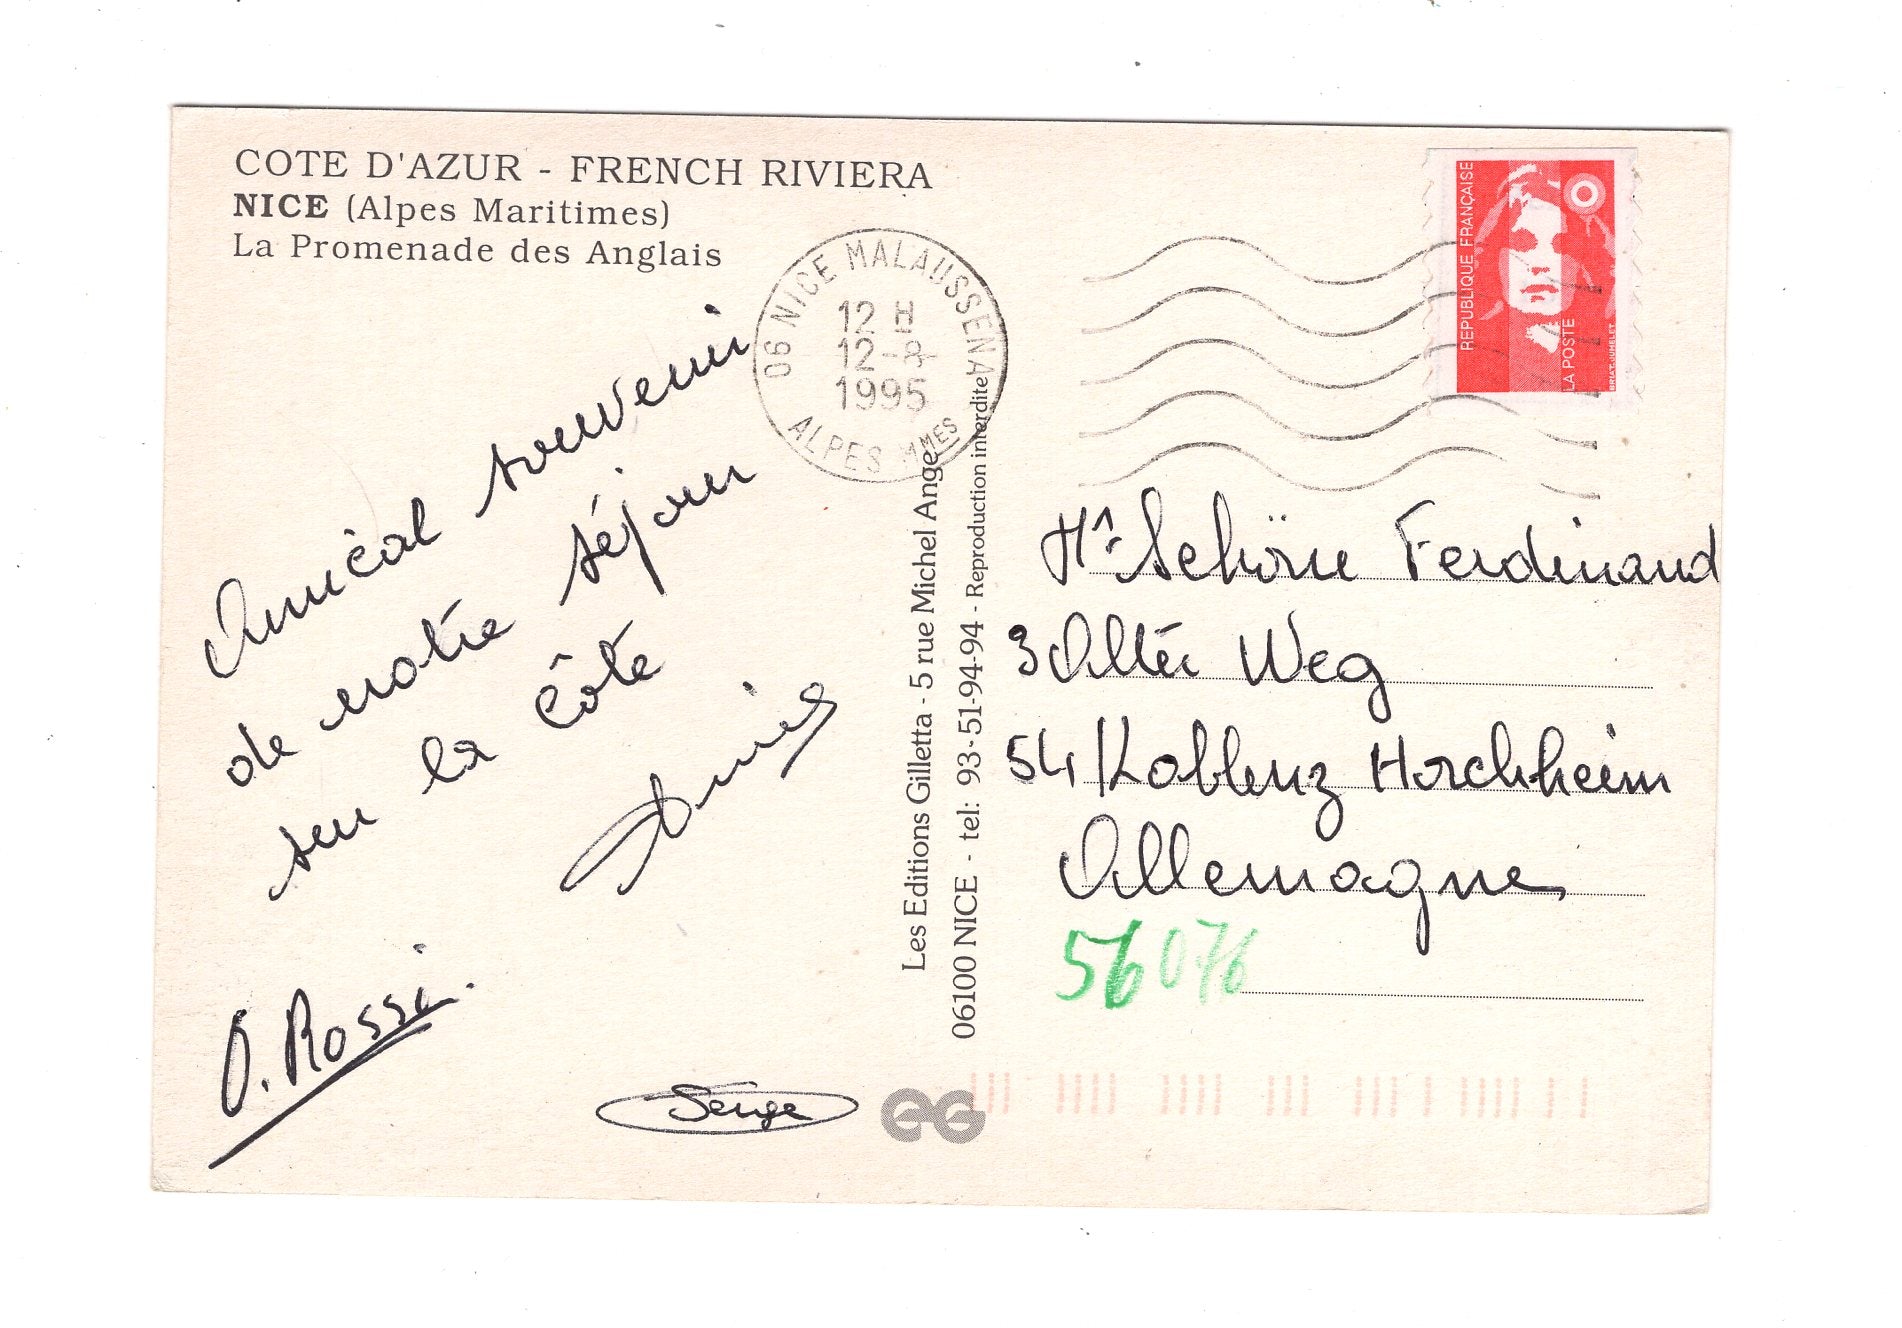 COTE D'AZUR - FRENCH RIVIERA
NICE (Alpes Maritimes)
La Promenade des Anglais
06 NICE MALAUSSENA
12 H
12-8
1995
ALPES MMES
REPUBLIQUE FRANÇAISE
LA POSTE
BRIAT-JUMELET
Amical souvenir
de notre séjour
sur la Côte
O. Rossi.
Serge
Les Editions Gilletta - 5 rue Michel Ange
06100 NICE - tel: 93-51-94-94 - Reproduction interdite
Mr Schöne Ferdinand
3 Alter Weg
54 Koblenz Horchheim
Allemagne
56076